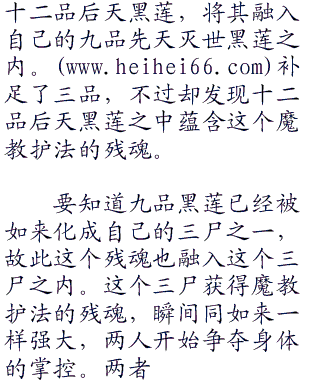 十二品后天黑莲，将其融入
自己的九品先天灭世黑莲之
内。(www.heihei66.com)补
足了三品，不过却发现十二
品后天黑莲之中蕴含这个魔
教护法的残魂。
要知道九品黑莲已经被
如来化成自己的三尸之一，
故此这个残魂也融入这个三
尸之内。这个三尸获得魔教
护法的残魂，瞬间同如来一
样强大，两人开始争夺身体
的掌控。两者